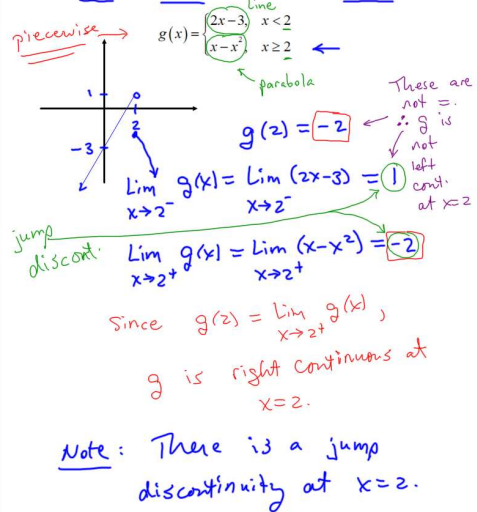 line
piecewise → g(x) = { 2x − 3, x < 2
x − x², x ≥ 2 ←
parabola
1
2
−3
g(2) = −2
These are
not =.
∴ g is
not
left
cont.
at x=2
Lim g(x) = Lim (2x−3) = 1
x→2⁻ x→2⁻
jump
discont.
Lim g(x) = Lim (x−x²) = −2
x→2⁺ x→2⁺
Since g(2) = Lim g(x),
x→2⁺
g is right continuous at
x=2.
Note: There is a jump
discontinuity at x=2.